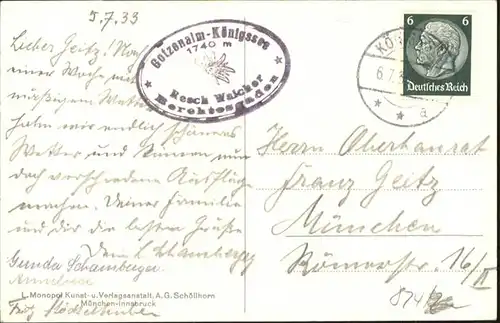 5.7.33
Lieber Geitz! Nach
einer Woche mit
mäßigem Wetter
haben wir endlich schönes
Wetter und können nun
doch verschiedene Ausflüge
machen. Deiner Familie
und dir die besten Grüße
Dein L. Schamberger
Gunda Schamberger
Anneliese
Gotzenalm-Königssee
1740 m
Resch Walcher
Berchtesgaden
6
6
Deutsches Reich
6.7.
a
Herrn Oberbaurat
Franz Geitz
München
Römerstr. 16/II
L. Monopol Kunst- u. Verlagsanstalt, A.G. Schöllhorn
München-Innsbruck
Fritz